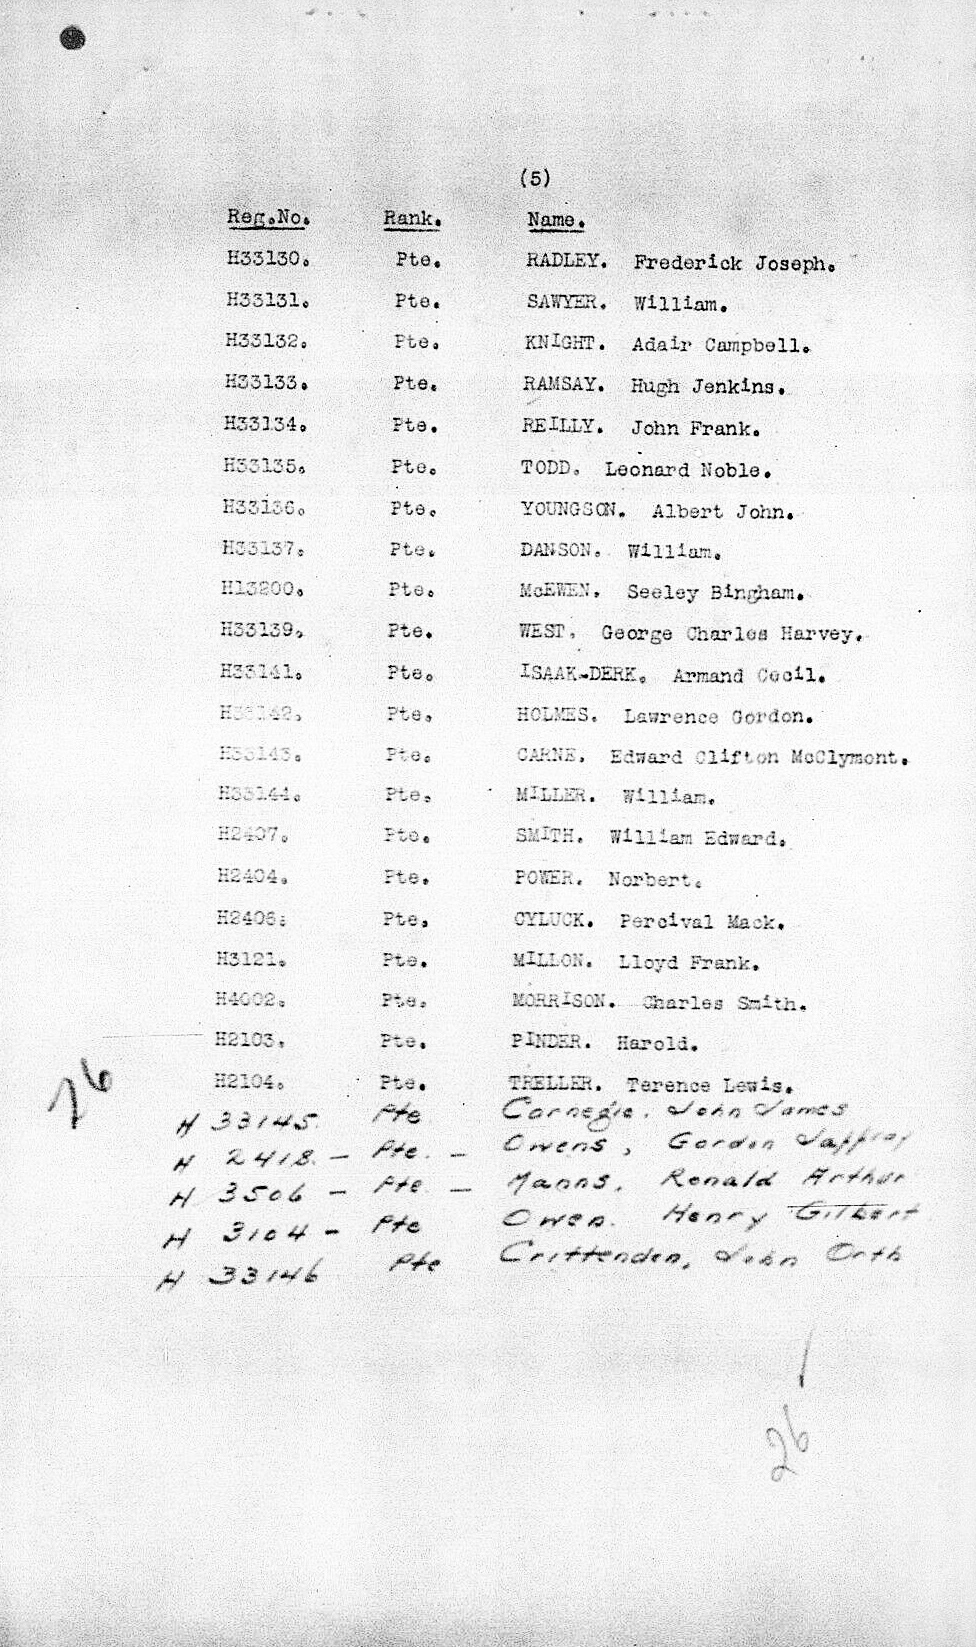 (5)
Reg.No. Rank. Name.
H33130. Pte. RADLEY. Frederick Joseph.
H33131. Pte. SAWYER. William.
H33132. Pte. KNIGHT. Adair Campbell.
H33133. Pte. RAMSAY. Hugh Jenkins.
H33134. Pte. REILLY. John Frank.
H33135. Pte. TODD. Leonard Noble.
H33136. Pte. YOUNGSON. Albert John.
H33137. Pte. DANSON. William.
H13200. Pte. McEWEN. Seeley Bingham.
H33139. Pte. WEST. George Charles Harvey.
H33141. Pte. ISAAK-DERK. Armand Cecil.
H33142. Pte. HOLMES. Lawrence Gordon.
H33143. Pte. CARNE. Edward Clifton McClymont.
H33144. Pte. MILLER. William.
H2407. Pte. SMITH. William Edward.
H2404. Pte. POWER. Norbert.
H2406. Pte. CYLUCK. Percival Mack.
H3121. Pte. MILLON. Lloyd Frank.
H4002. Pte. MORRISON. Charles Smith.
H2103. Pte. PINDER. Harold.
H2104. Pte. TRELLER. Terence Lewis.
26
H 33145. Pte Carnegie. John James
H 2418. - Pte. - Owens, Gordon
H 3506 - Pte - Manns. Ronald Arthur
H 3104 - Pte Owen. Henry Gilbert
H 33146 Pte Crittenden, John Orth
26